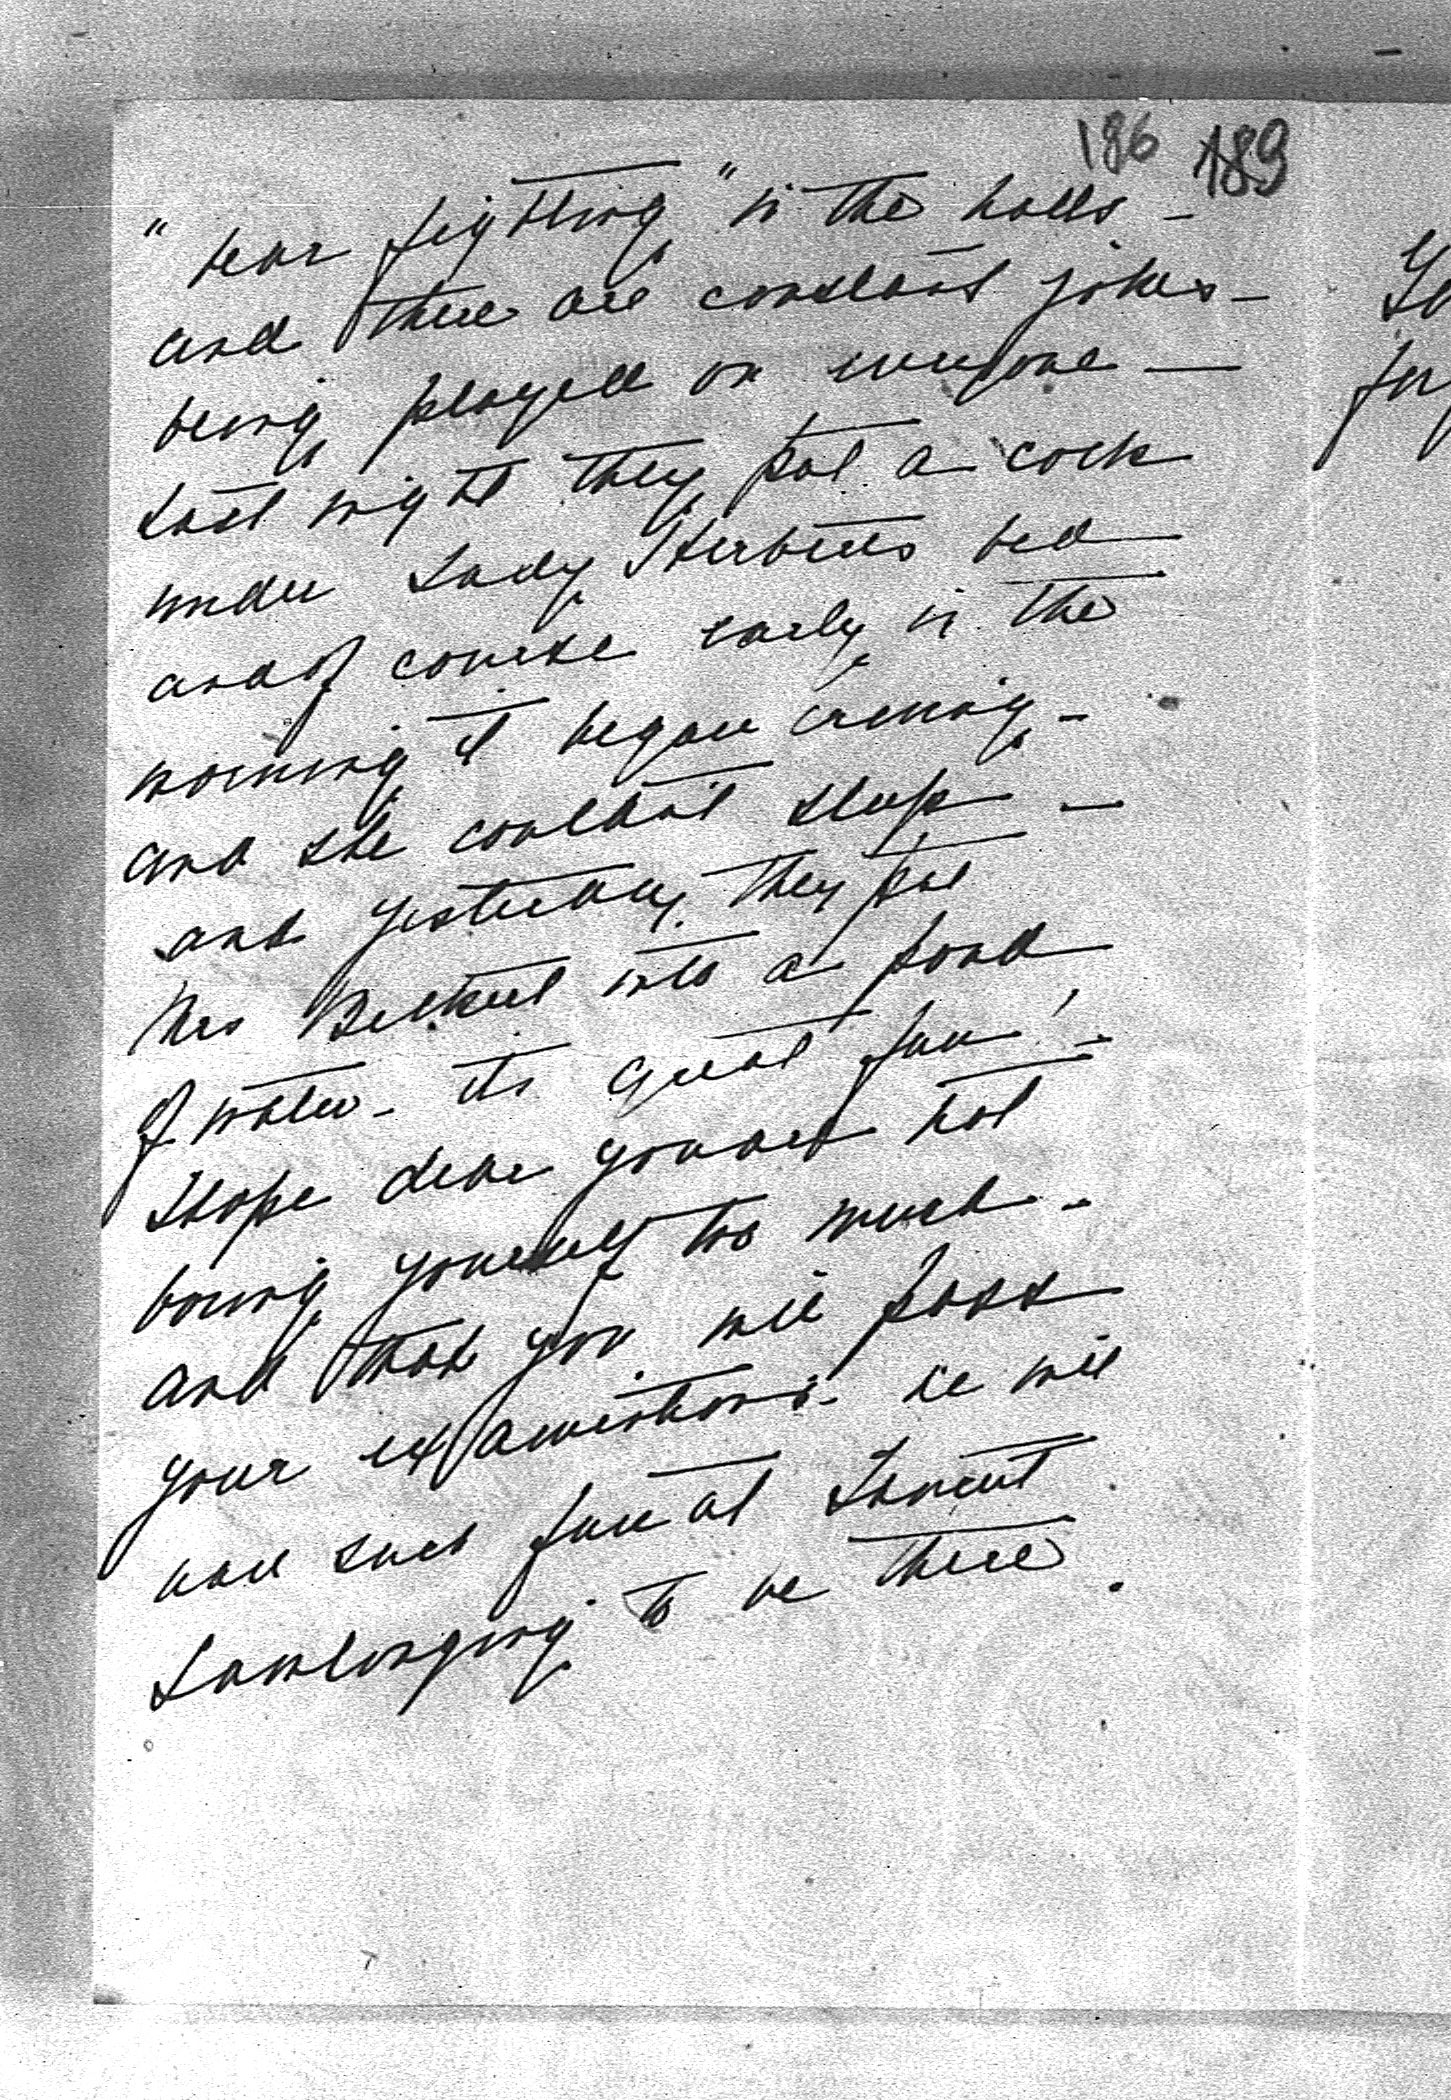 186 189
"bear fighting" in the halls -
and there are constant jokes -
being played on everyone —
Last night they put a cock
under Lady Herberts bed
and of course early in the
morning it began crowing -
and she couldn't sleep -
and yesterday they put
Mrs into a pond
of water - its great fun! -
I hope dear you are not
boring yourself too much -
and that you will pass
your examinations - we will
have such fun at
I am longing to be there.